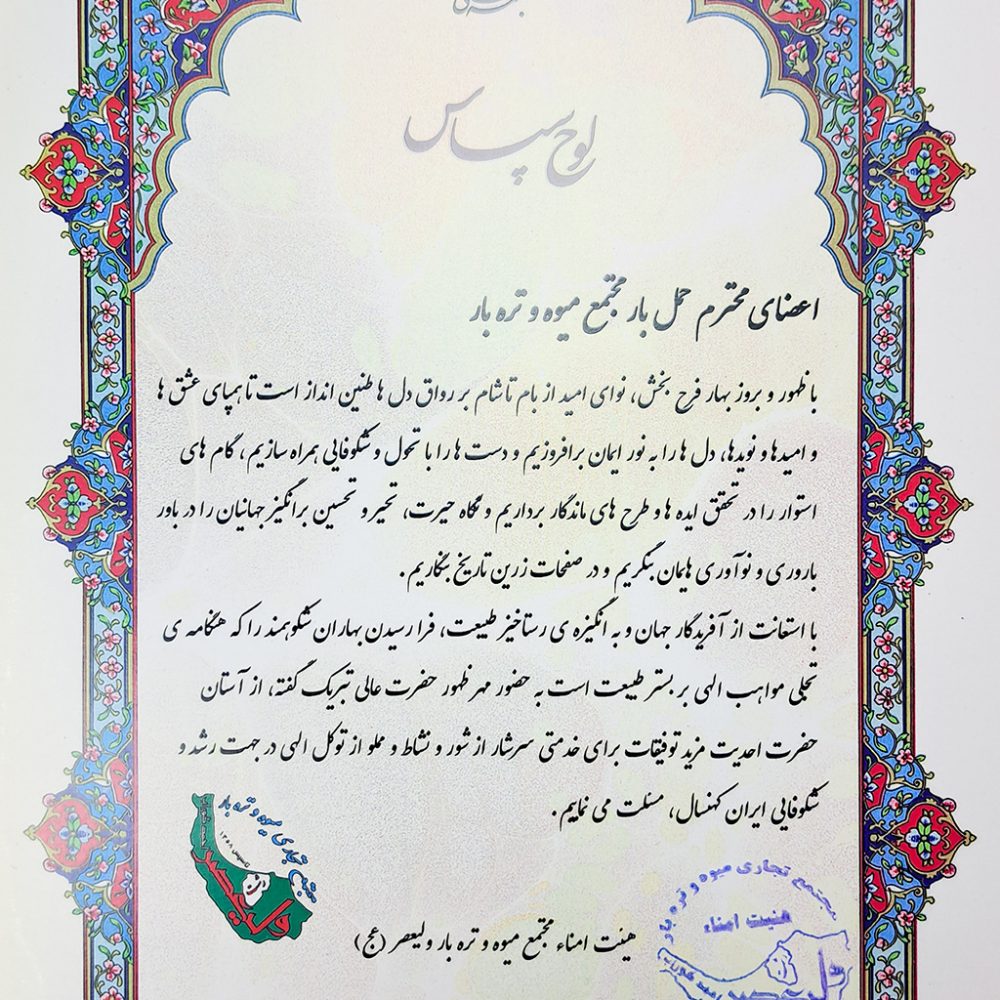 لوح سپاس
اعضای محترم حمل بار مجتمع میوه و تره بار
با ظهور و بروز بهار فرح بخش، نوای امید از بام تا شام بر رواق دل ها طنین انداز است تا همپای عشق ها
و امیدها و نویدها، دل ها را به نور ایمان برافروزیم و دست ها را با تحول و شکوفایی همراه سازیم، گام های
استوار را در تحقق ایده ها و طرح های ماندگار برداریم و نگاه حیرت، تحیر و تحسین برانگیز جهانیان را در باور
باروری و نوآوری هایمان بنگریم و در صفحات زرین تاریخ بنگاریم.
با استعانت از آفریدگار جهان و به انگیزه ی رستاخیز طبیعت، فرا رسیدن بهاران شکوهمند را که هنگامه ی
تجلی مواهب الهی بر بستر طبیعت است به حضور مهر ظهور حضرت عالی تبریک گفته، از آستان
حضرت احدیت مزید توفیقات برای خدمتی سرشار از شور و نشاط و مملو از توکل الهی در جهت رشد و
شکوفایی ایران کهنسال، مسئلت می نماییم.
مجتمع تجاری میوه و تره بار
ولیعصر
مجتمع تجاری میوه و تره بار
هیئت امناء
هیئت امناء مجتمع میوه و تره بار ولیعصر (عج)